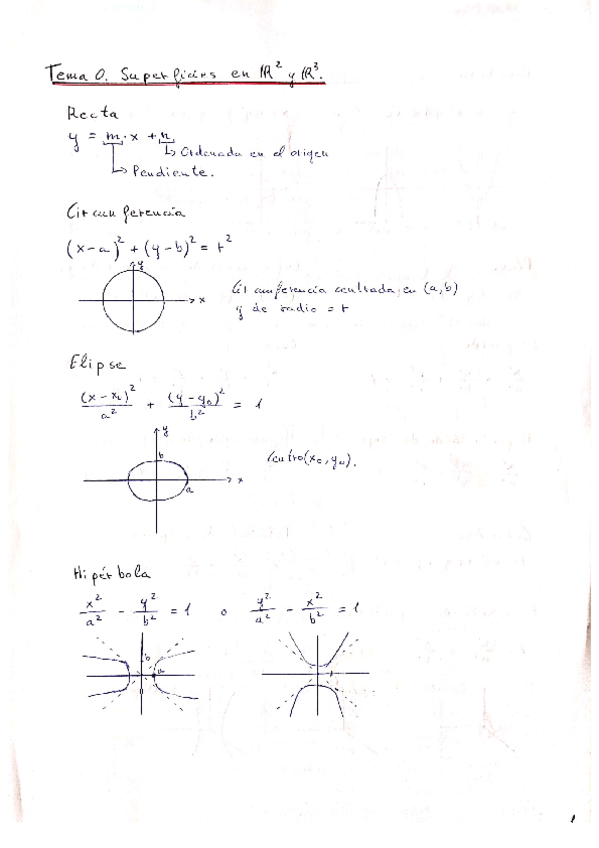 Tema 0. Superficies en ℝ² y ℝ³.
Recta
y = m·x + n
↳ Ordenada en el origen
↳ Pendiente.
Circunferencia
(x-a)² + (y-b)² = r²
y
x
Circunferencia centrada en (a,b)
y de radio = r
Elipse
(x-x₀)²/a² + (y-y₀)²/b² = 1
y
b
a
x
Centro (x₀, y₀).
Hipérbola
x²/a² - y²/b² = 1 o y²/a² - x²/b² = 1
b
a
1